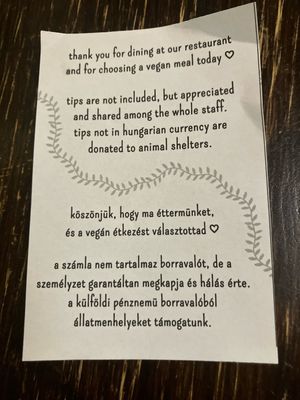 thank you for dining at our restaurant
and for choosing a vegan meal today ♡
tips are not included, but appreciated
and shared among the whole staff.
tips not in hungarian currency are
donated to animal shelters.
köszönjük, hogy ma éttermünket,
és a vegán étkezést választottad ♡
a számla nem tartalmaz borravalót, de a
személyzet garantáltan megkapja és hálás érte.
a külföldi pénznemű borravalóból
állatmenhelyeket támogatunk.